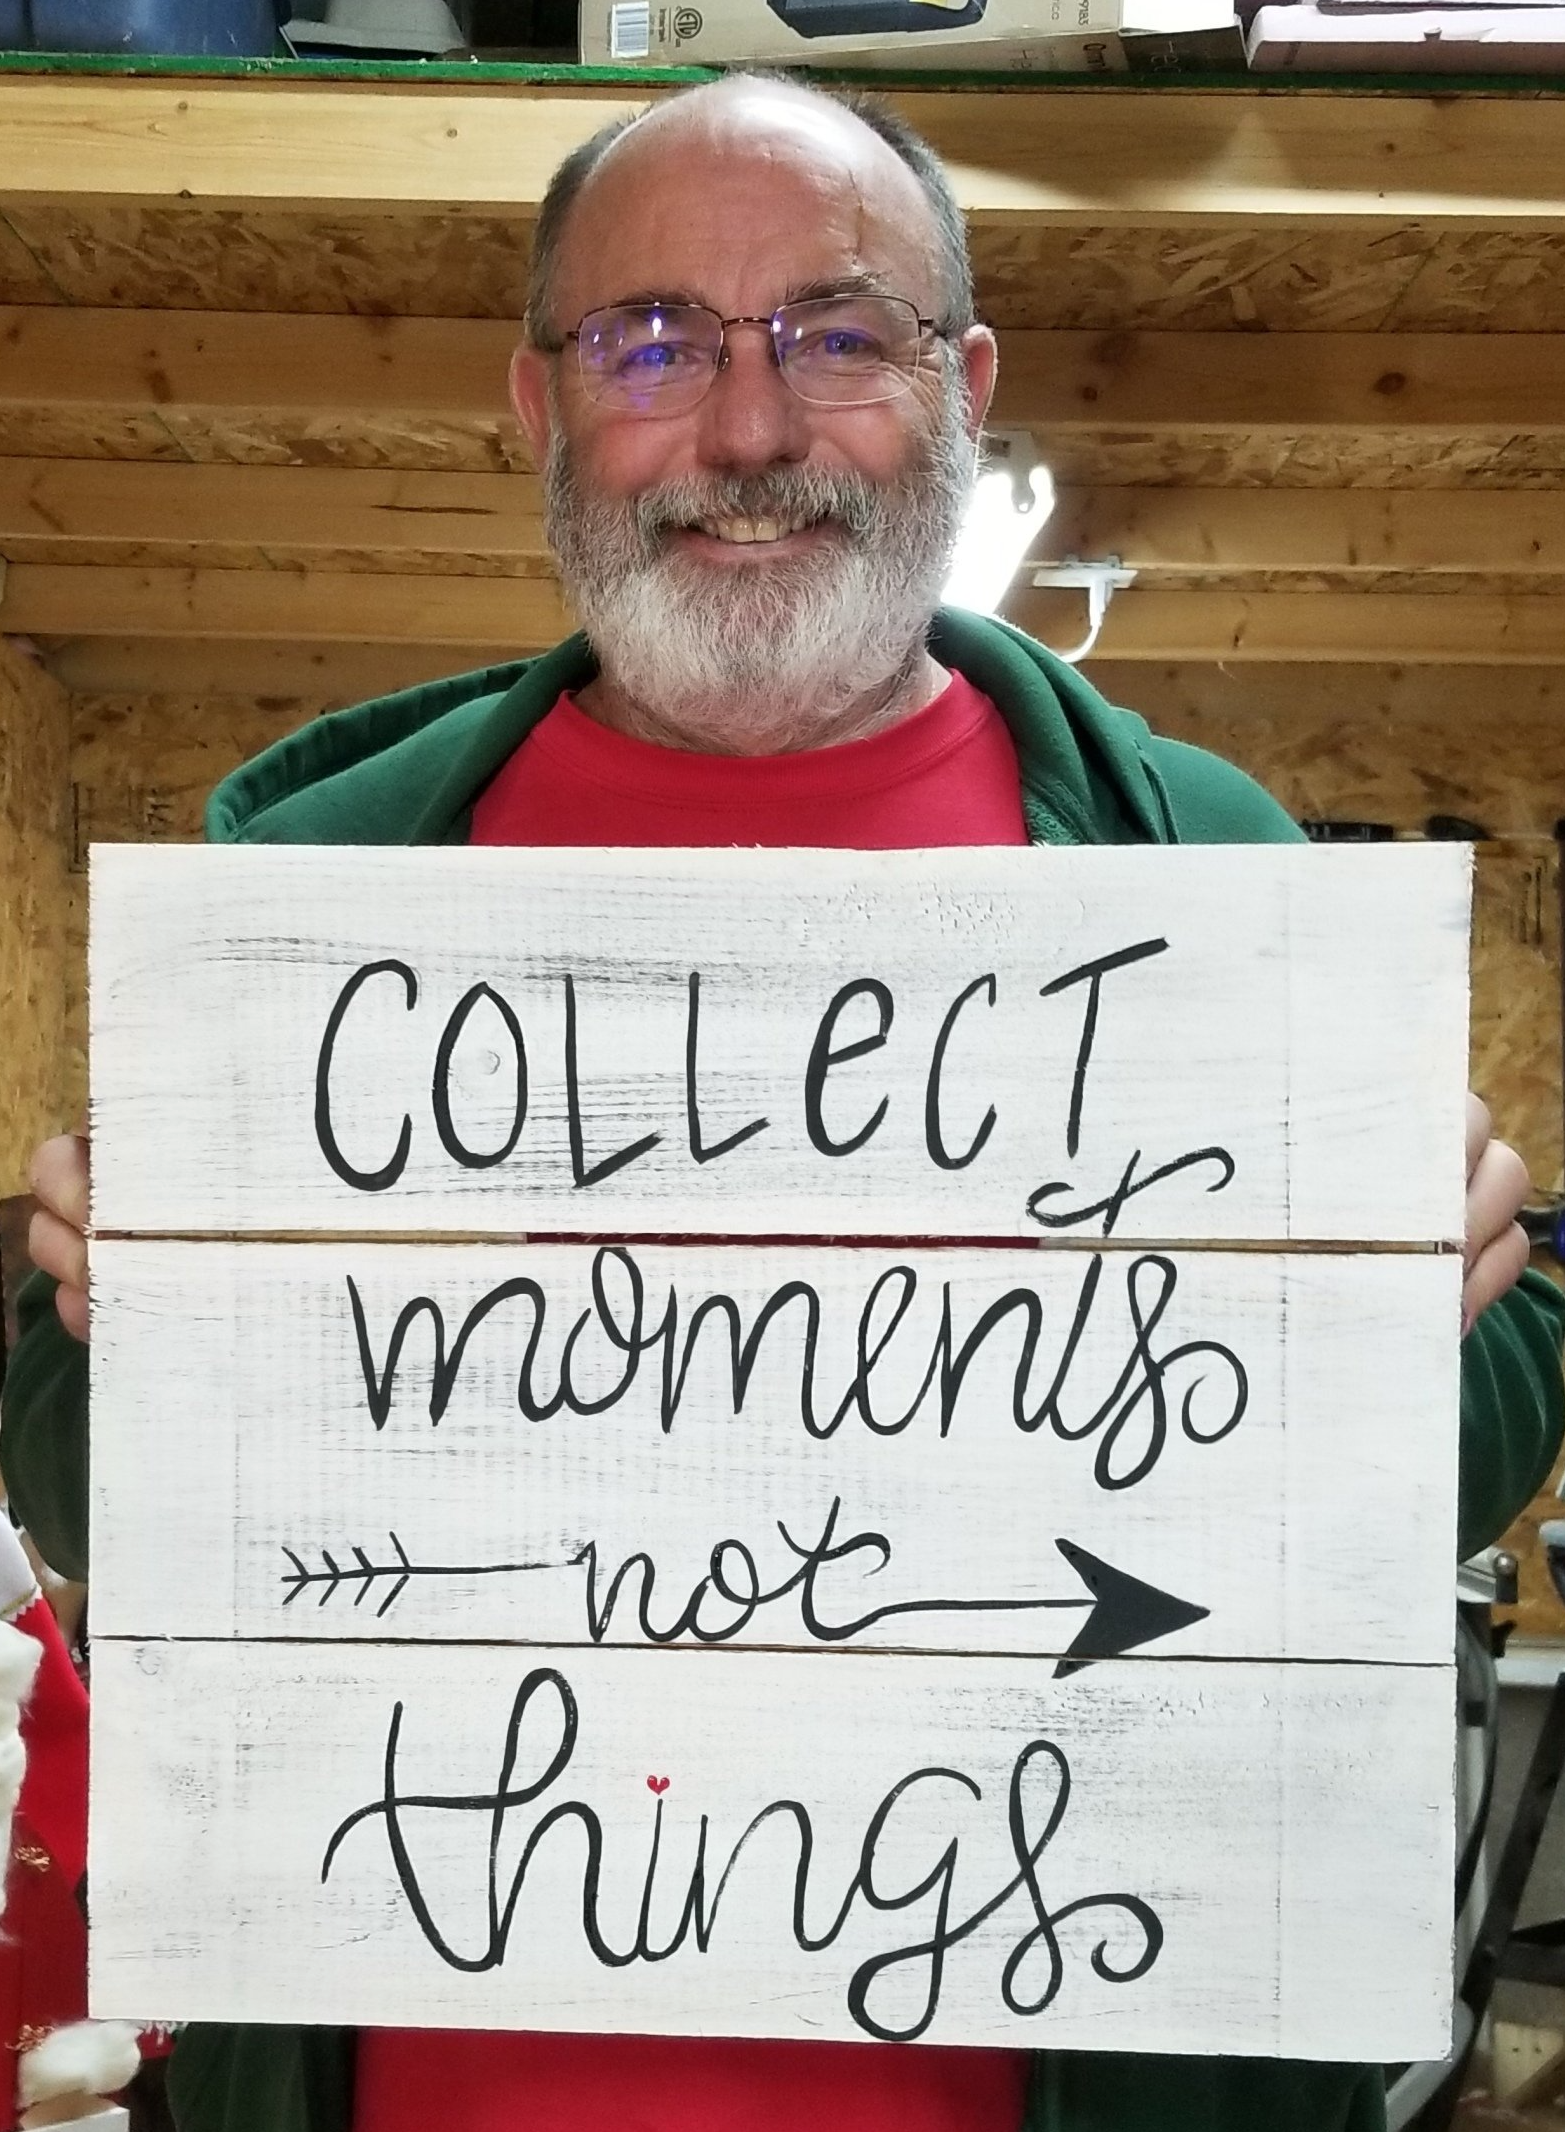 COLLeCT
moments
not
things